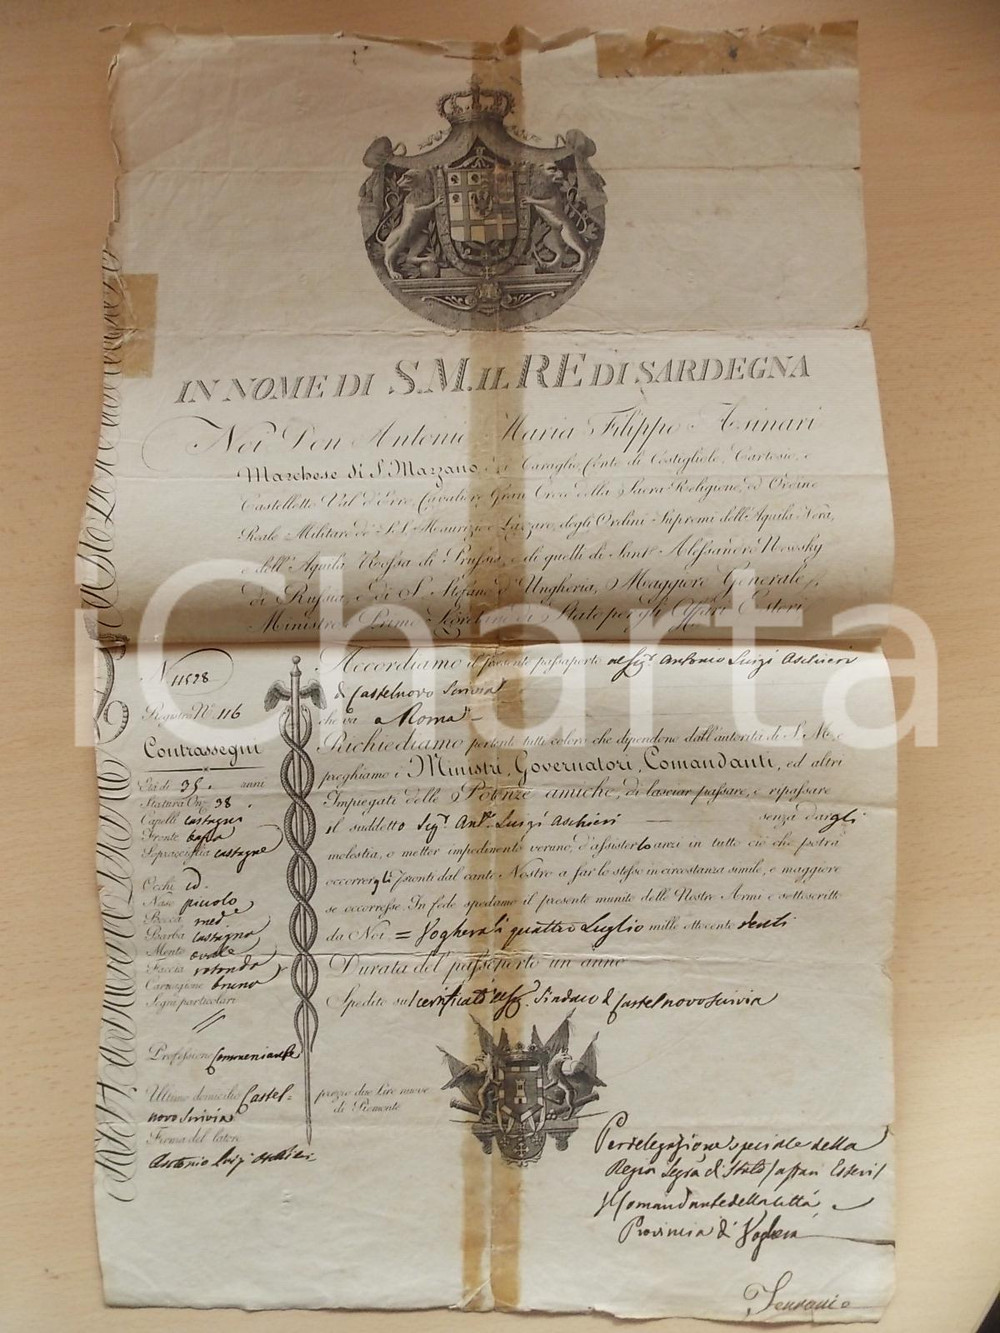 IN NOME DI S.M. IL RE DI SARDEGNA
Noi Don Antonio Maria Filippo Asinari
Marchese di S. Marzano, di Caraglio, Conte di Costigliole, Cartosio, e
Castelletto Val d'Erro, Cavaliere Gran Croce della Sacra Religione, ed Ordine
Reale Militare de' S.S. Maurizio e Lazzaro, degli Ordini Supremi dell'Aquila Nera,
e dell'Aquila Rossa di Prussia, e di quelli di Sant' Alessandro Newsky
di Russia, e di S. Stefano d'Ungheria, Maggiore Generale,
Ministro e Primo Segretario di Stato per gli Affari Esteri
Accordiamo il presente passaporto al Sig.r Antonio Luigi Aschieri
di Castelnovo Scrivia
che va a Roma
Richiediamo pertanto tutti coloro che dipendono dall'autorità di S.M., e
preghiamo i Ministri, Governatori, Comandanti, ed altri
Impiegati delle Potenze amiche, di lasciar passare, e ripassare
il suddetto Sig.r Ant.o Luigi Aschieri senza dargli
molestia, o metter impedimento veruno, d'assisterlo anzi in tutto ciò che potrà
occorrergli, pronti dal canto Nostro a far lo stesso in circostanza simile, e maggiore
se occorresse. In fede spediamo il presente munito delle Nostre Armi e sottoscritto
da Noi = Voghera li quattro Luglio mille ottocento venti
Durata del passaporto un anno
Spedito sul certificato del Sig.r Sindaco di Castelnovo Scrivia
N. 11528
Registro N.° 116
Contrassegni
Età di 35. anni
Statura On. 38.
Capelli castagni
Fronte bassa
Sopracciglia castagne
Occhi id.
Naso piccolo
Bocca med.e
Barba castagna
Mento ovale
Faccia rotonda
Carnagione bruna
Segni particolari
//
Professione Commerciante
Ultimo domicilio Castel=
novo Scrivia
Firma del latore
Antonio Luigi Aschieri
prezzo due Lire nuove
di Piemonte
Per delegazione speciale della
Regia Segr.a di Stato (affari Esteri)
Il Comandante della Città e
Provincia di Voghera
iCharta